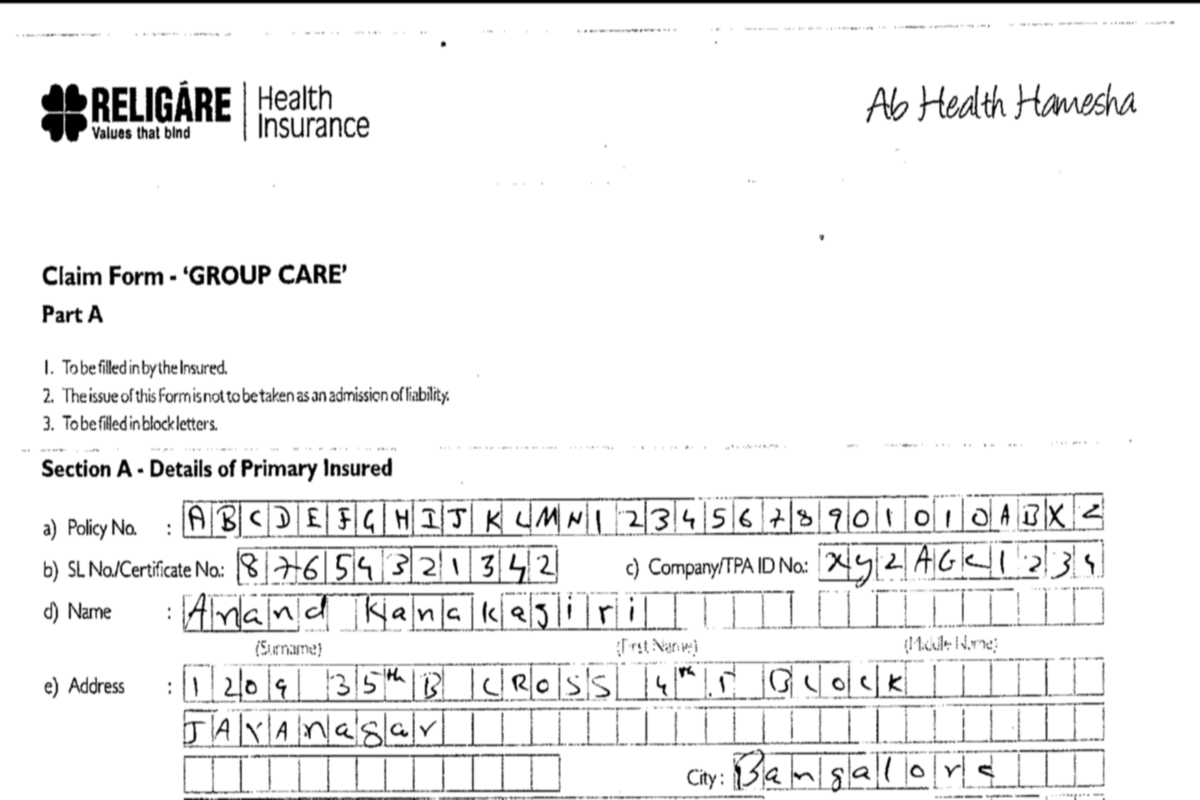 RELIGARE
Values that bind
Health
Insurance
Ab Health Hamesha
Claim Form - ‘GROUP CARE’
Part A
1. To be filled in by the Insured.
2. The issue of this Form is not to be taken as an admission of liability.
3. To be filled in block letters.
Section A - Details of Primary Insured
a) Policy No. : ABCDEFGHIJKLMN12345678901010ABXC
b) SL No./Certificate No.: 87654321342 c) Company/TPA ID No.: XYZAGC1234
d) Name : Anand Kanakagiri
(Surname) (First Name) (Middle Name)
e) Address : 1209 35th B CROSS 4th T BLOCK
JAYAnagar
City: Bangalore